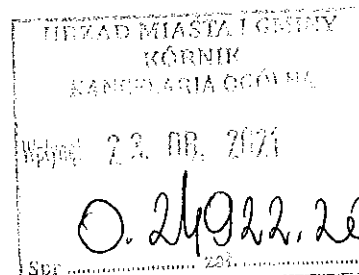 URZĄD MIASTA I GMINY
KÓRNIK
KANCELARIA OGÓLNA
Wpłynęł 23. 08. 2021
O. 24922. 2
Spr. .................. zał. ..................